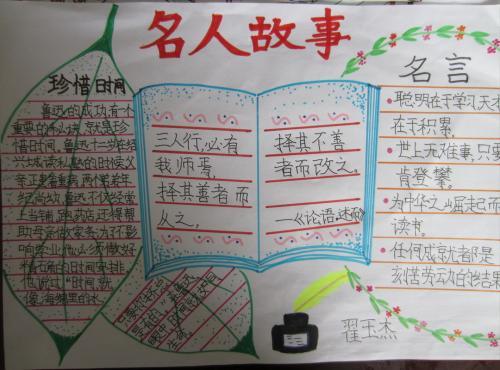 名人故事
珍惜时间
鲁迅的成功,有一个
重要的秘诀,就是珍
惜时间,鲁迅十二岁在绍
兴城读私塾的时候,父
亲正患着重病,两个弟弟年
纪尚幼,鲁迅不仅经常
上当铺,跑药店,还得帮
助母亲做家务,为不影
响学业,他必须做好
精确的时间安排。
他说过"时间,就
像海绵里的水
三人行,必有
我师焉,
择其善者而
从之,
择其不善
者而改之。
——《论语·述而》
名言
聪明在于学习,天才
在于积累,
世上无难事,只要
肯登攀。
为中华之崛起而
读书。
任何成就都是
刻苦劳动的结果
翟玉杰